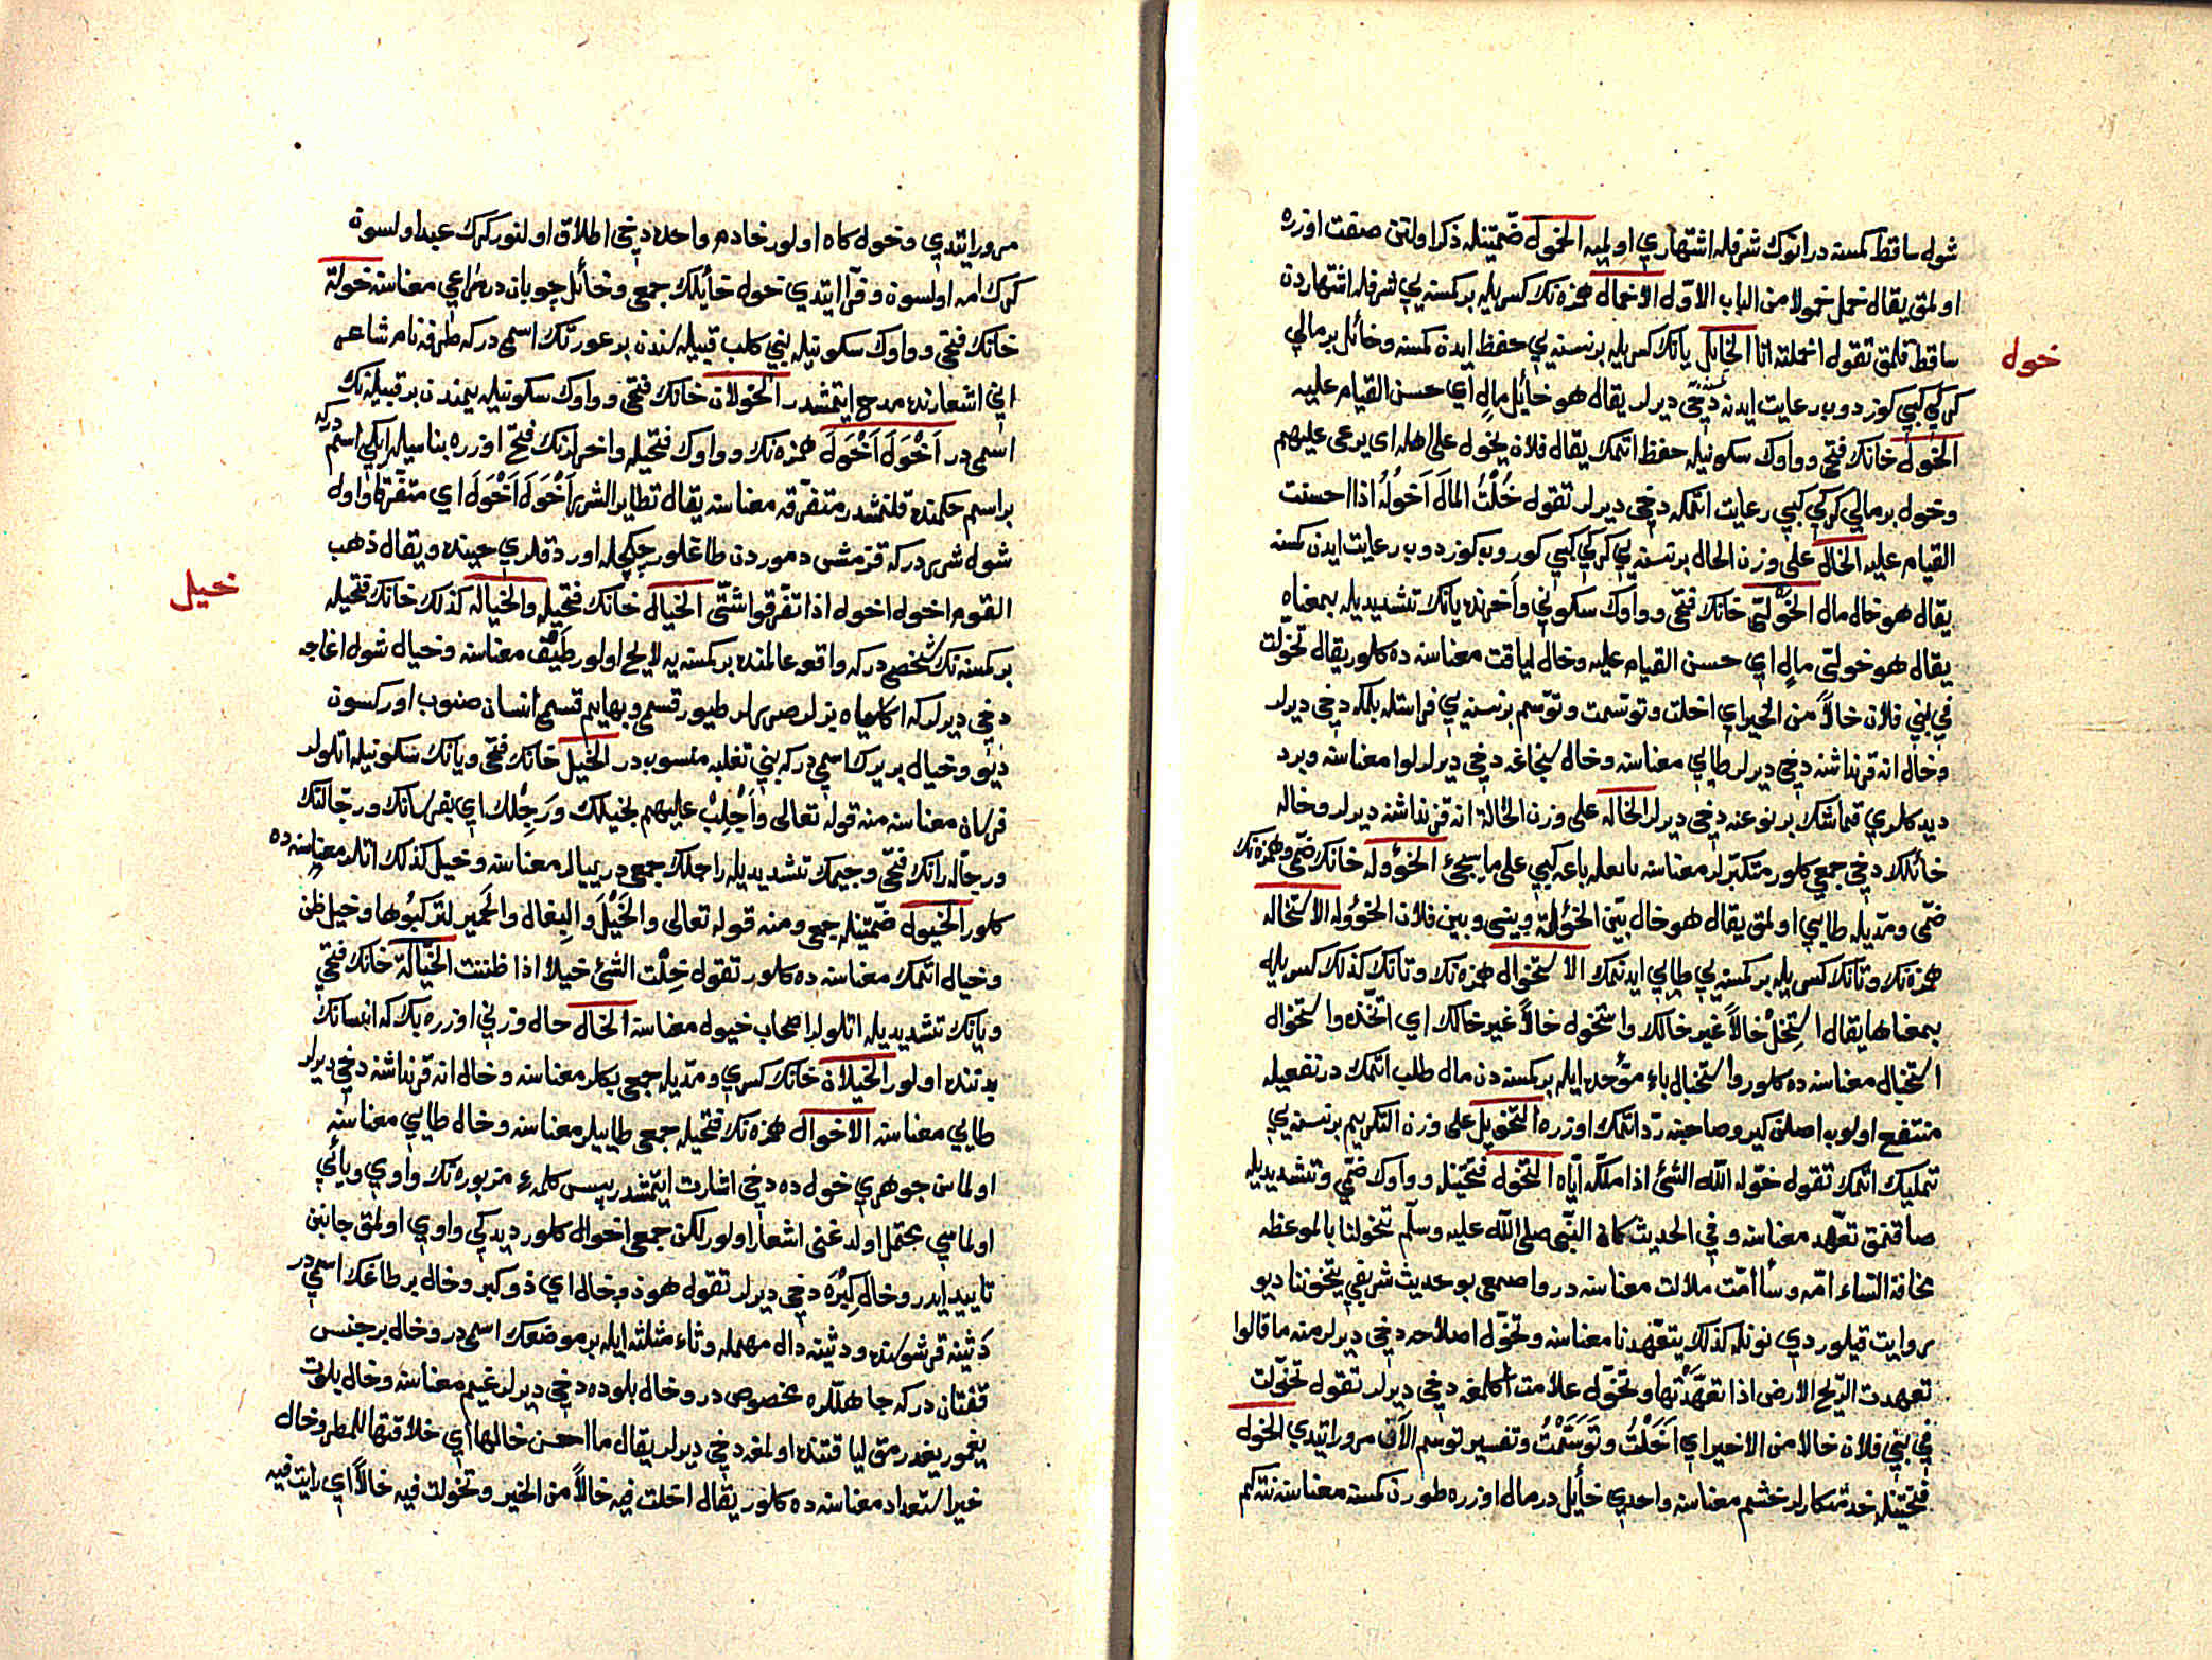 شول ساقط كمسنه در انوك شرفله اشتهاري اولميه الخمول ضمتينله ذكر اولنن صفت اوزره
اولمق يقال خمل خمولا من الباب الاول الاخمال همزه نك كسريله بر كمسنه يي شرفله اشتهاردن
ساقط قلمق تقول اخملته انا الخايل يانك كسريله بر نسنه يي حفظ ايدن كمسنه وخائل بر مالي
خول
كركي كبي كوزدوب رعايت ايدنه دخي ديرلر يقال هو خايل مال اي حسن القيام عليه
الخول خانك فتحي وواوك سكونيله حفظ اتمك يقال فلان يخول على اهله اي يرعى عليهم
وخول بر مالي كركي كبي رعايت اتمكه دخي ديرلر تقول خُلْتُ المالَ اَخولُهُ اذا احسنت
القيام عليه الخال على وزن الحال بر نسنه يي كركي كبي كوروب كوزدوب رعايت ايدن كمسنه
يقال هو خال مال الخولي خانك فتحي وواوك سكوني وآخرنده يانك تشديديله بمعناه
يقال هو خولي مال اي حسن القيام عليه وخال لياقت معناسنه ده كلور يقال تخولت
في بني فلان خالاً من الخير اي اخلت وتوسمت وتوسم بر نسنه يي فراستله بلمكه دخي ديرلر
وخال انه قرنداشنه دخي ديرلر طايي معناسنه وخال سنجاغه دخي ديرلر لوا معناسنه وبرد
ديدكلري قماشك بر نوعنه دخي ديرلر الخاله على وزن الحالة انه قز نداشنه ديرلر وخاله
خائلك دخي جمعي كلور متكبرلر معناسنه بايعله باعه كبي على ما سيجيء الخؤوله خانك ضمي وهمزه نك
ضمي ومديله طايي اولمق يقال هو خال بيّن الخؤلة وبيني وبين فلان الخؤوله الاستخاله
همزه نك وتانك كسريله بر كمسنه يي طايي ايدنمك الاستخوال همزه نك وتانك كذلك كسريله
بمعناها يقال استخل خالاً غير خالك واستخول خالاً غير خالك اي اتخذه واستخوال
استخبال معناسنه ده كلور واستخبال باء موحده ايله بر كمسنه دن مال طلب اتمك در نفعيله
منتفع اولوب اصلن كيرو صاحبنه رد اتمك اوزره التخويل على وزن التكريم بر نسنه يي
تمليك اتمك تقول خوله الله الشئ اذا ملكه اياه التخول فتحتينله وواوك ضمي وتشديديله
صاقنمق تعهد معناسنه وفي الحديث كان النبي صلى الله عليه وسلم يتخولنا بالموعظه
مخافة السّاءمة وسأامت ملالت معناسنه در واصمعي بو حديث شريفي يتخوننا ديو
روايت قيلوردي نونله كذلك يتعهدنا معناسنه وتخول اصلاحه دخي ديرلر منه ما قالوا
تعهدت الريح الارض اذا تعهدتها وتخول علامت اكلمغه دخي ديرلر تقول تخولت
في بني فلان خالا من الاخير اي اَخَلْتُ وتَوَسَّمْتُ وتفسير توسم الآن مرور اتيدي الخول
فتحتينله خدمتكارلر خشم معناسنه واحدي خايل در مال اوزره طورن كمسنه معناسنه نته كم
مرور ايتدي وخول كاه اولور خادم واحده دخي اطلاق اولنور كرك عبد اولسون
كرك امه اولسون وفرّا ايتدي خول خايلك جمعي وخائل چوبان در راعي معناسنه خولة
خانك فتحي وواوك سكونيله بني كلب قبيله سندن بر عورتك اسمي در كه طرفه نام شاعر
اني اشعارنده مدح ايتمشدر الخولان خانك فتحي وواوك سكونيله يمندن بر قبيله نك
اسمي در اَخْوَلَ اَخْوَلَ همزه نك وواوك فتحيله واخرلرنك فتح اوزره بناسيله ايكي اسم دركه
بر اسم حكمنده قلنمشدر متفرقه معناسنه يقال تطاير الشرر اَخْوَلَ اَخْوَلَ اي متفرقا واول
شول شرر دركه قزمشی دموردن طاغلور چكچله اوردقلري حينده ويقال ذهب
القوم اخول اخول اذا تفرقوا شتى الخيال خانك فتحيله والخياله كذلك خانك فتحيله
خيل
بر كمسنه نك شخصي دركه واقعه عالمنده بر كمسنه يه لايح اولور طَيْف معناسنه وخيال شول اغاجه
دخي ديرلر كه اكا سياه بزلر صررلر طيور قسمي وبهايم قسمي انسان صنوب اوركسون
ديو وخيال بر يرك اسمي دركه بني تغلبه منسوب در الخيل خانك فتحي ويانك سكونيله اتلولر
فرسان معناسنه منه قوله تعالى واَجْلِبْ عليهم بخيلك ورَجِلِك اي بفرسانك ورجّالتك
ورجاله رانك فتحي وجيمك تشديديله راجلك جمعي در يييالر معناسنه وخيل كذلك اتلر معناسنه ده
كلور الخيول ضمتينله جمعي ومنه قوله تعالى والخَيْلَ والبِغالَ والحَميرَ لتركبُوها وخيل ظن
وخيال اتمك معناسنه ده كلور تقول خِلْتُ الشئ خيلاً اذا ظننت الخيّالة خانك فتحي
ويانك تشديديله اتلولر اصحاب خيول معناسنه الخال حال وزني اوزره بك كه انسانك
بدننده اولور الخيلان خانك كسري ومديله جمعي بكلر معناسنه وخال انه قرنداشنه دخي ديرلر
طايي معناسنه الاخوال همزه نك فتحيله جمعي طاييلر معناسنه وخال طايي معناسنه
اولماسن جوهري خول ده دخي اشارت ايتمشدر پس كلمهء مزبوره نك واوي ويائي
اولماسي محتمل اولدغني اشعار اولور لكن جمعي اخوال كلور ديدكي واوي اولمق جانبن
تاييد ايدر وخال كبره دخي ديرلر تقول هو ذو خال اي ذو كبر وخال بر طاغك اسمي در
دَثينه قرشوسنده ودثينه دال مهمله وثاء مثلثه ايله بر موضعك اسمي در وخال بر جنس
قفتان دركه جاهللره مخصوص در وخال بلوده دخي ديرلر غيم معناسنه وخال بلوت
يغمور يغدرمق لياقتنده اولمغه دخي ديرلر يقال ما احسن خالها اي خلاقتها للمطر وخال
خير استعداد معناسنه ده كلور يقال اخلت فيه خالاً من الخير وتخولت فيه خالاً اي رايت فيه